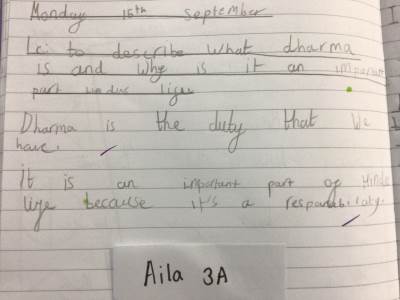 Monday 15th september
Lc: to describe What dharma
is and Why is it an imporant
part lige
Dharma is the duty that We
have.
it is an important part og Hindu
lige because it's a responsabilaty.
Aila 3A